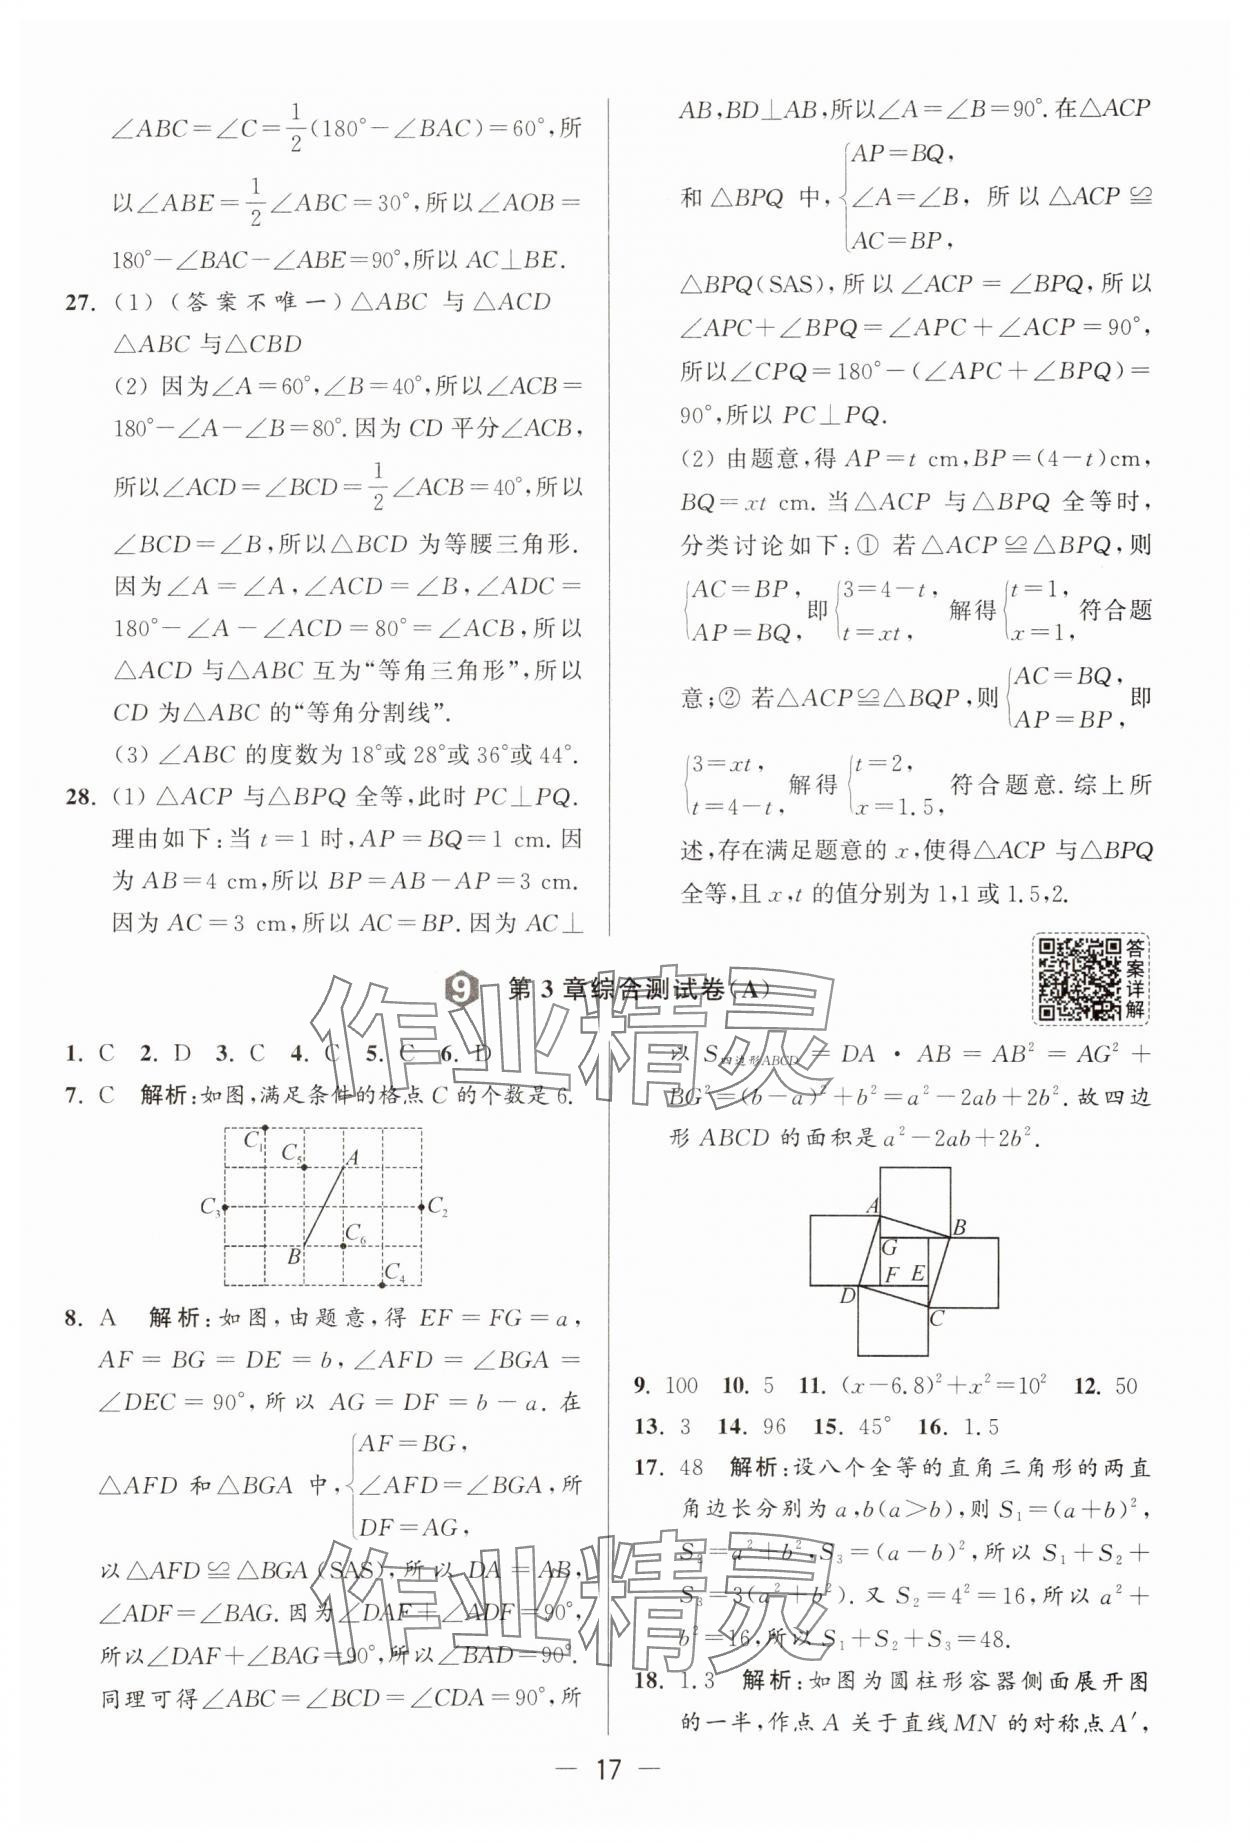 ∠ABC=∠C=1/2(180°-∠BAC)=60°,所
以∠ABE=1/2∠ABC=30°,所以∠AOB=
180°-∠BAC-∠ABE=90°,所以AC⊥BE.
27. (1)(答案不唯一)△ABC 与△ACD
△ABC 与△CBD
(2) 因为∠A=60°,∠B=40°,所以∠ACB=
180°-∠A-∠B=80°.因为CD平分∠ACB,
所以∠ACD=∠BCD=1/2∠ACB=40°,所以
∠BCD=∠B,所以△BCD 为等腰三角形.
因为∠A=∠A,∠ACD=∠B,∠ADC=
180°-∠A-∠ACD=80°=∠ACB,所以
△ACD 与△ABC 互为“等角三角形”,所以
CD 为△ABC 的“等角分割线”.
(3) ∠ABC 的度数为18°或28°或36°或44°.
28. (1) △ACP 与△BPQ 全等,此时PC⊥PQ.
理由如下:当t=1时,AP=BQ=1 cm.因
为AB=4 cm,所以BP=AB-AP=3 cm.
因为AC=3 cm,所以AC=BP.因为AC⊥
AB,BD⊥AB,所以∠A=∠B=90°.在△ACP
和△BPQ 中,{AP=BQ, ∠A=∠B, AC=BP, 所以△ACP≌
△BPQ(SAS),所以∠ACP=∠BPQ,所以
∠APC+∠BPQ=∠APC+∠ACP=90°,
所以∠CPQ=180°-(∠APC+∠BPQ)=
90°,所以PC⊥PQ.
(2) 由题意,得AP=t cm,BP=(4-t)cm,
BQ=xt cm.当△ACP 与△BPQ 全等时,
分类讨论如下:① 若△ACP≌△BPQ,则
{AC=BP, AP=BQ, 即{3=4-t, t=xt, 解得{t=1, x=1, 符合题
意;② 若△ACP≌△BQP,则{AC=BQ, AP=BP, 即
{3=xt, t=4-t, 解得{t=2, x=1.5, 符合题意.综上所
述,存在满足题意的x,使得△ACP 与△BPQ
全等,且x,t的值分别为1,1或1.5,2.
9 第3章综合测试卷(A)
答案详解
1. C 2. D 3. C 4. C 5. C 6. D
7. C 解析:如图,满足条件的格点C的个数是6.
C₁ C₅ A
C₃ C₂
B C₆
C₄
8. A 解析:如图,由题意,得EF=FG=a,
AF=BG=DE=b,∠AFD=∠BGA=
∠DEC=90°,所以AG=DF=b-a.在
△AFD 和△BGA 中,{AF=BG, ∠AFD=∠BGA, DF=AG, 所
以△AFD≌△BGA(SAS),所以DA=AB,
∠ADF=∠BAG.因为∠DAF+∠ADF=90°,
所以∠DAF+∠BAG=90°,所以∠BAD=90°.
同理可得∠ABC=∠BCD=∠CDA=90°,所
以S四边形ABCD=DA·AB=AB²=AG²+
BG²=(b-a)²+b²=a²-2ab+2b².故四边
形ABCD的面积是a²-2ab+2b².
A
B
G
F E
D
C
9. 100 10. 5 11. (x-6.8)²+x²=10² 12. 50
13. 3 14. 96 15. 45° 16. 1.5
17. 48 解析:设八个全等的直角三角形的两直
角边长分别为a,b(a>b),则S₁=(a+b)²,
S₂=a²+b²,S₃=(a-b)²,所以S₁+S₂+
S₃=3(a²+b²).又S₂=4²=16,所以a²+
b²=16,所以S₁+S₂+S₃=48.
18. 1.3 解析:如图为圆柱形容器侧面展开图
的一半,作点A关于直线MN的对称点A′,
— 17 —
作业精灵
作业精灵